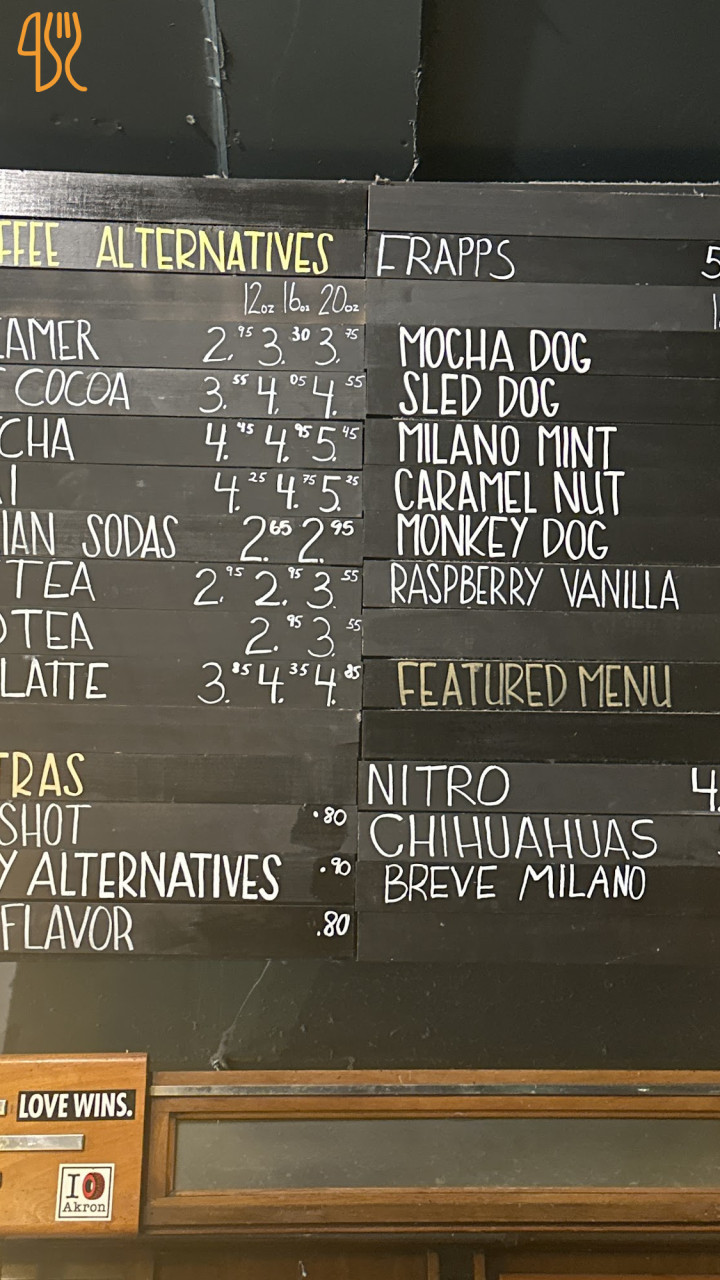 FFEE ALTERNATIVES
12oz 16oz 20oz
EAMER 2.95 3.30 3.75
COCOA 3.55 4.05 4.55
CHA 4.45 4.95 5.45
I 4.25 4.75 5.25
IAN SODAS 2.65 2.95
TEA 2.95 2.95 3.55
TEA 2.95 3.55
LATTE 3.85 4.35 4.85
TRAS
SHOT .80
Y ALTERNATIVES .90
FLAVOR .80
FRAPPS 5
MOCHA DOG
SLED DOG
MILANO MINT
CARAMEL NUT
MONKEY DOG
RASPBERRY VANILLA
FEATURED MENU
NITRO 4.
CHIHUAHUAS
BREVE MILANO
LOVE WINS.
I
Akron